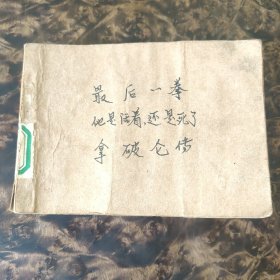 最后一拳
他是活着,还是死了
拿破仑传